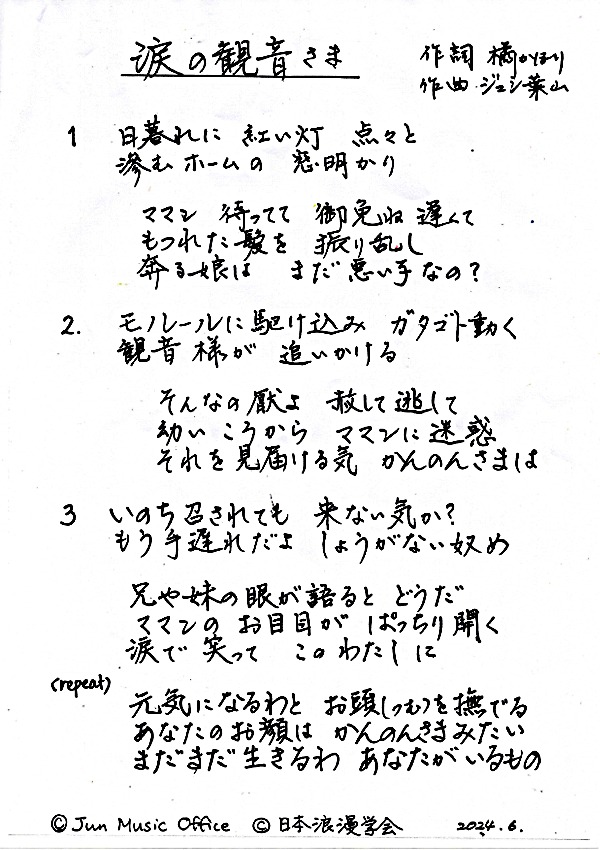 涙の観音さま
作詞 橘かほり
作曲 ジェシー葉山
1 日暮れに 紅い灯 点々と
滲むホームの 窓明かり
ママン 待ってて 御免ね 遅くて
もつれた髪を 振り乱し
奔る娘は まだ悪い子なの?
2. モノレールに駆け込み ガタゴト動く
観音様が 追いかける
そんなの厭よ 赦して逃して
幼いころから ママンに迷惑
それを見届ける気 かんのんさまは
3 いのち召されても 来ない気か?
もう手遅れだよ しょうがない奴め
兄や妹の眼が語ると どうだ
ママンの お目目が ぱっちり開く
涙で 笑って このわたしに
(repeat)
元気になるわと お頭(つむ)を撫でる
あなたのお顔は かんのんさまみたい
まだまだ生きるわ あなたがいるもの
© Jun Music Office © 日本浪漫学会 2024.6.